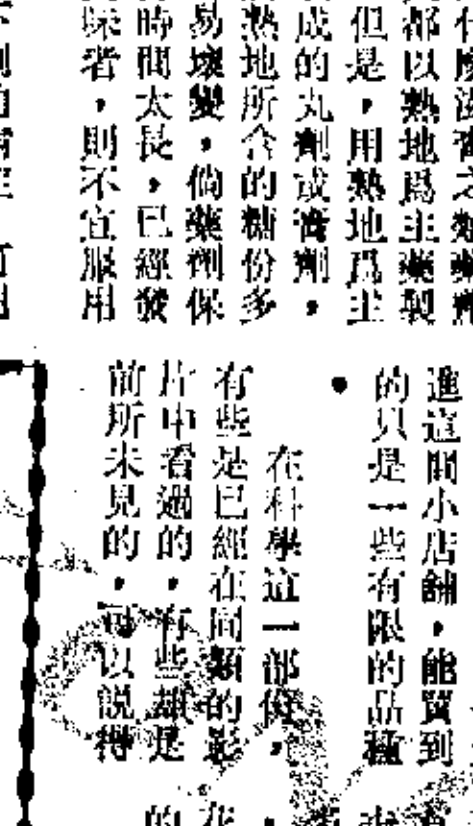 都以熟地爲主藥製
但是，用熟地爲主
成的丸劑或膏劑，
熟地所含的糖份多
易壞變，倘藥劑保
時間太長，已經發
味者，則不宜服用
進這間小店舖，能買到
的只是一些有限的品種
。
在科學這一部份，
有些是已經在同類的影
片中看過的，有些却是
前所未見的，可以說得